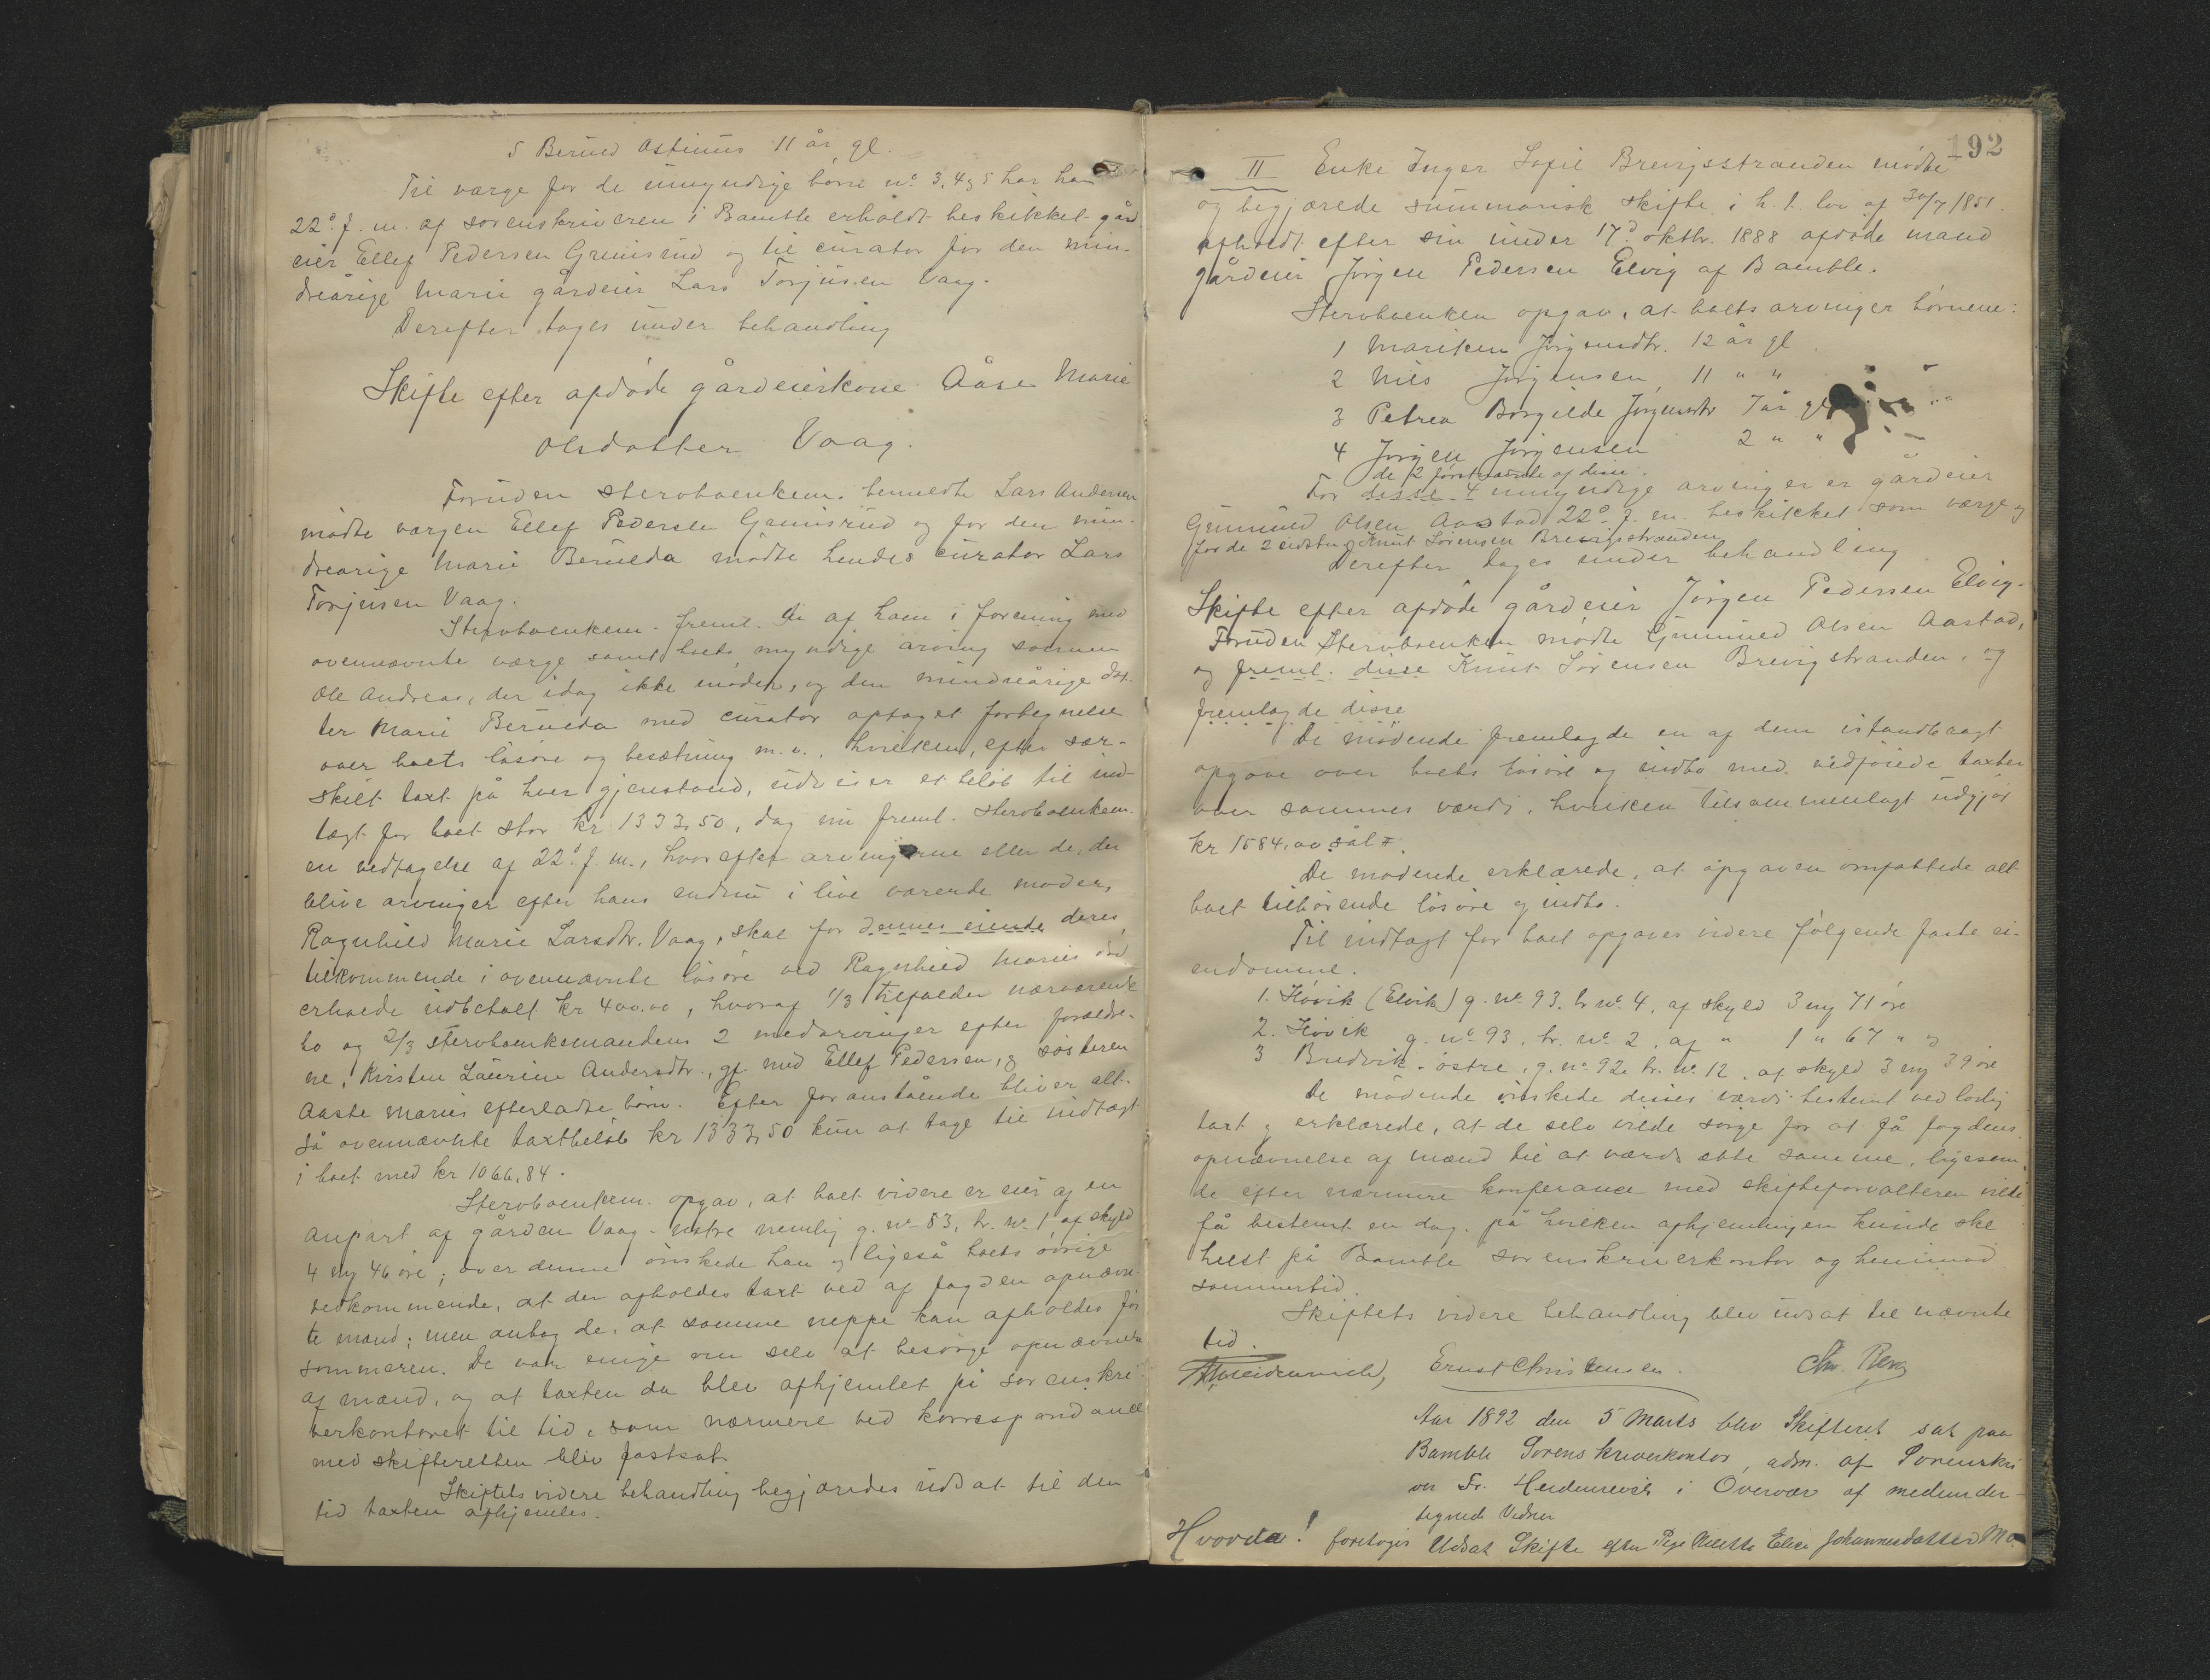 5 Berned Astinus 11 år gl.
Til værge for de umyndige børn no 3, 4 og 5 har han
22de f. m. af sorenskriveren i Bamble erholdt beskikket gård
eier Ellef Pedersen Grimsrud og til curator for den min-
dreårige Marie gårdeier Lars Torjusen Vaag.
Derefter toges under behandling
Skifte efter afdøde gårdeierkone Ååse Marie
Olsdatter Vaag.
Foruden sterboenkem. bemeldte Lars Andersen
mødte værgen Ellef Pedersen Grimsrud og for den min-
dreårige Marie Berneda mødte hendes curator Lars
Torjusen Vaag.
Sterboenkem. freml. en af ham i forening med
ovennævnte værge samt boets myndige arving sønnen
Ole Andreas, der idag ikke møder, og den mindreårige dat-
ter Marie Berneda med curator optaget fortegnelse
over boets løsøre og besætning m. v. hvilken, efter sær-
skilt taxt på hver gjenstand, udviser et beløb til ind-
tægt for boet stor kr 1333,50, dog nu freml. sterboenkem.
en vedtagelse af 22de f. m., hvorefter arvingerne eller de, der
blive arvinger efter hans endnu i live værende moder,
Ragnhild Marie Larsdtr. Vaag, skal for dennes eiende deres
tilkommende i ovennævnte løsøre ved Ragnhild Maries død
erholde udbetalt kr 400.00, hvoraf 1/3 tilfalder nærværende
bo og 2/3 sterboenkemandens 2 medarvinger efter forældre-
ne, Kirsten Laurine Andersdtr., gf med Ellef Pedersen, og søsteren
Aaste Maries efterladte børn. Efter foranstående bliver alt-
så ovennævnte taxtbeløb kr 1333,50 kun at tage til indtægt
i boet med kr 1066,84.
Sterboenkem. opgav, at boet videre er eier af en
anpart af gården Vaag-nstre nemlig g. no 83, br. no 1 af skyld
4 my 46 øre; over denne ønskede han og ligeså boets øvrige
vedkommende, at der afholdes taxt ved af fogden opnævn-
te mænd; men antog de, at samme neppe kan afholdes før
sommeren. De var enige om selv at besørge opnævnelse
af mænd, og at taxten da blev afhjemlet på sorenskri-
verkontoret til tid, som nærmere ved korrespondance
med skifteretten blev fastsat.
Skiftets videre behandling begjæredes udsat til den
tid taxten afhjemles.
192
II Enke Inger Sofie Brevigsstranden mødte
og begjærede summarisk skifte i h. t. lov af 30/7 1851
afholdt efter sin under 17d oktbr. 1888 afdøde mand
gårdeier Jørgen Pedersen Elvig af Bamble.
Sterboenken opgav, at boets arvinger børnene:
1 Mariken Jørgensdtr. 12 år gl
2 Nils Jørgensen, 11 " "
3 Petrea Borgilde Jørgensdtr 7 år gl
4 Jørgen Jørgensen 2 " "
de 2 førstnævnte af disse
For disse 4 umyndige arvinger er gårdeier
Gunnuld Olsen Aastad 22de f. m. beskikket som værge og
for de 2 sidste, Knut Sørensen Brevigstranden
Derefter toges under behandling
Skifte efter afdøde gårdeier Jørgen Pedersen Elvig.
Foruden Sterboenken mødte Gunnuld Olsen Aastad,
og freml. disse Knut Sørensen Brevigstranden, og
fremlagde disse
De mødende fremlagde en af dem istandbragt
opgave over boets løsøre og indbo med vedføiede taxter
over sammes værdi, hvilken tilsammenlagt udgjør
kr 1584,00
De mødende erklærede, at opgaven omfattede alt
boet tilhørende løsøre og indbo.
Til indtægt for boet opgaves videre følgende faste ei-
endomme.
1. Høvik (Elvik) g. no 93. br no. 4, af skyld 3 my 71 øre
2. Høvik g. no 93, br. no. 2, af " 1 " 67 " "
3 Bredvik-østre, g. no. 92. br. no. 12. af skyld 3 my 39 øre
De mødende ønskede disses værdi bestemt ved lovlig
taxt og erklærede, at de selv vilde sørge for at få fogdens
opnævnelse af mænd til at værdsætte samme, ligesom
de efter nærmere konferance med skifteforvalteren vilde
få bestemt en dag, på hvilken afhjemlingen kunde ske
helst på Bamble sorenskriverkontor og henimod
sommertid.
Skiftets videre behandling blev udsat til nævnte
tid.
Fr Heidenreich, Ernst Christensen. Chr. Berg
Aar 1892 den 5 Marts blev Skifteret sat paa
Bamble Sorenskriverkontor, adm. af Sorenskri
ver Fr. Heidenreich i Overvær af medunder-
tegnede Vidner
Hvorda! foretoges Udsat Skifte efter Pige Mette Elise Johannesdatter Mo